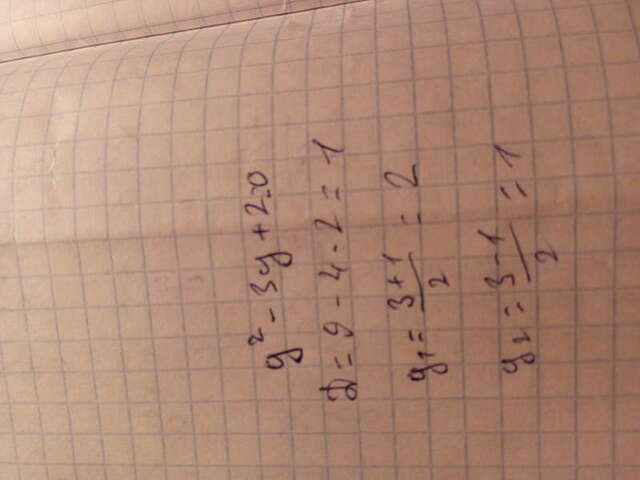 y² - 3y + 2=0
D = 9 - 4 · 2 = 1
y₁ = (3+1)/2 = 2
y₂ = (3-1)/2 = 1